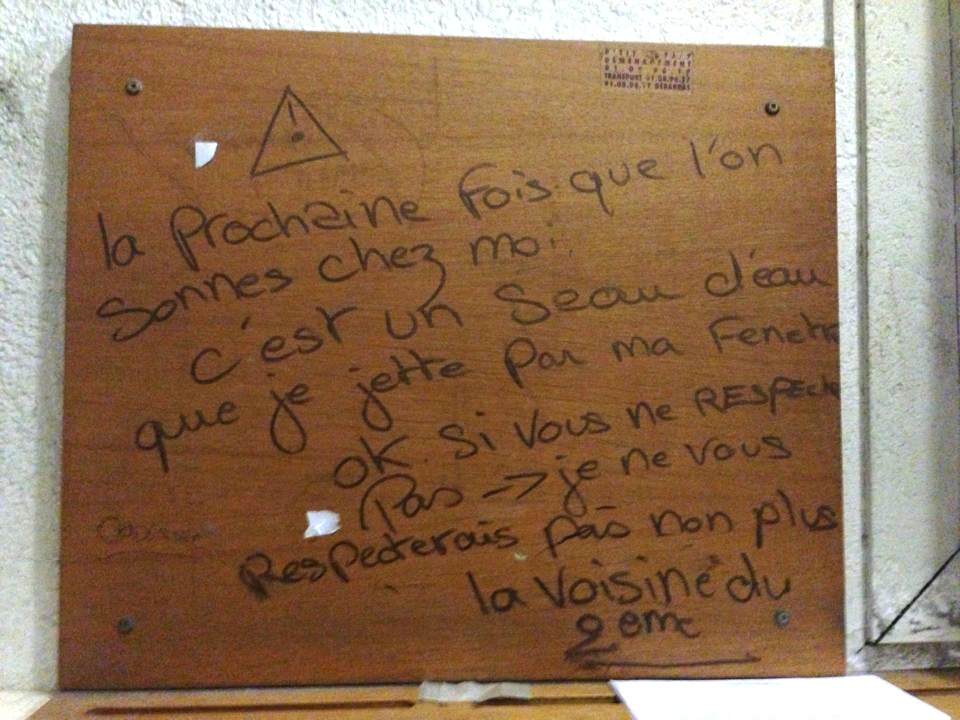 DEMENAGEMENT
TRANSPORT
la Prochaine Fois que l'on
Sonnes chez moi
c'est un Seau d'eau
que je jette Par ma Fenetr
OK. Si Vous ne RESPECte
Pas -> je ne vous
Respecterais pas non plus
la Voisine du
2eme